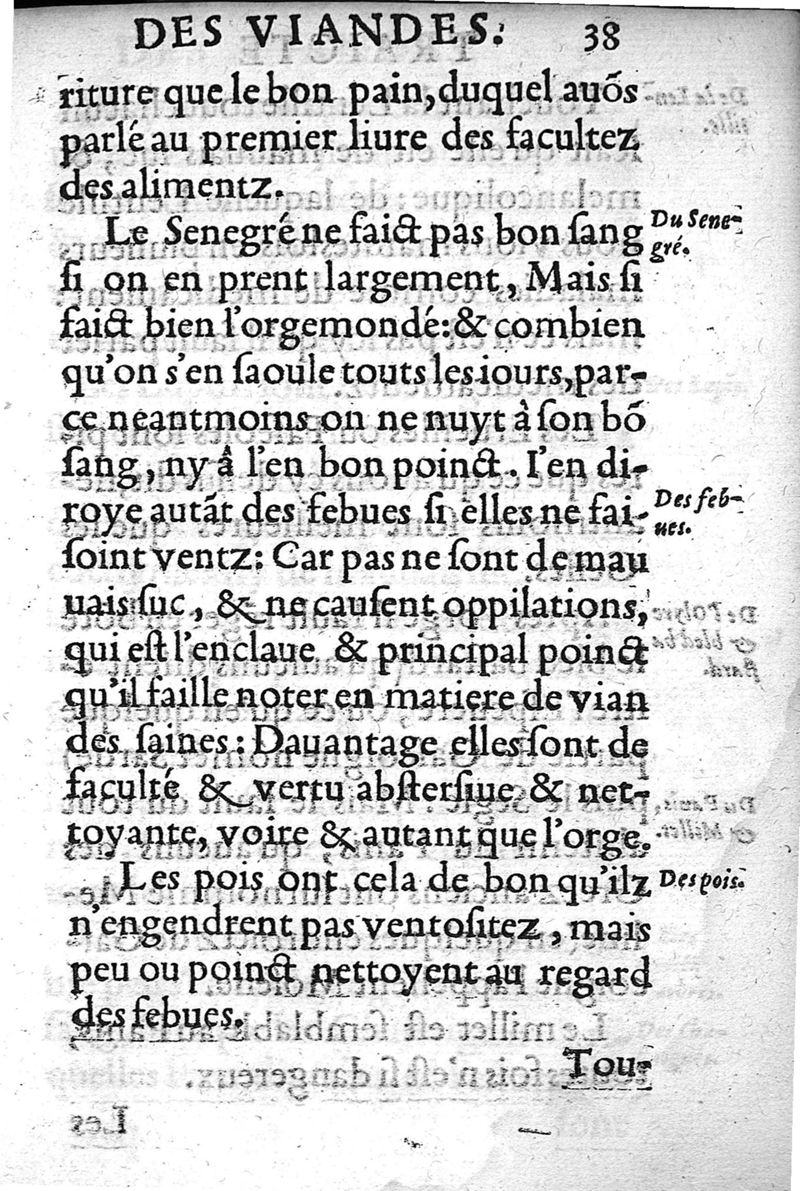 DES VIANDES. 38
riture que le bon pain, duquel auõs
parlé au premier liure des facultez
des alimentz.
Le Senegré ne faict pas bon ſang
Du Sene-
gré.
ſi on en prent largement, Mais ſi
faict bien l'orgemondé: & combien
qu'on s'en ſaoule touts les iours, par-
ce neantmoins on ne nuyt à ſon bõ
ſang, ny â l'en bon poinct. I'en di-
roye autãt des febues ſi elles ne fai-
Des feb-
ues.
ſoint ventz: Car pas ne ſont de mau
uais ſuc, & ne cauſent oppilations,
qui eſt l'enclaue & principal poinct
qu'il faille noter en matiere de vian
des ſaines: Dauantage elles ſont de
faculté & vertu abſterſiue & net-
toyante, voire & autant que l'orge.
Les pois ont cela de bon qu'ilz
Des pois.
n'engendrent pas ventoſitez, mais
peu ou poinct nettoyent au regard
des febues.
Tou-